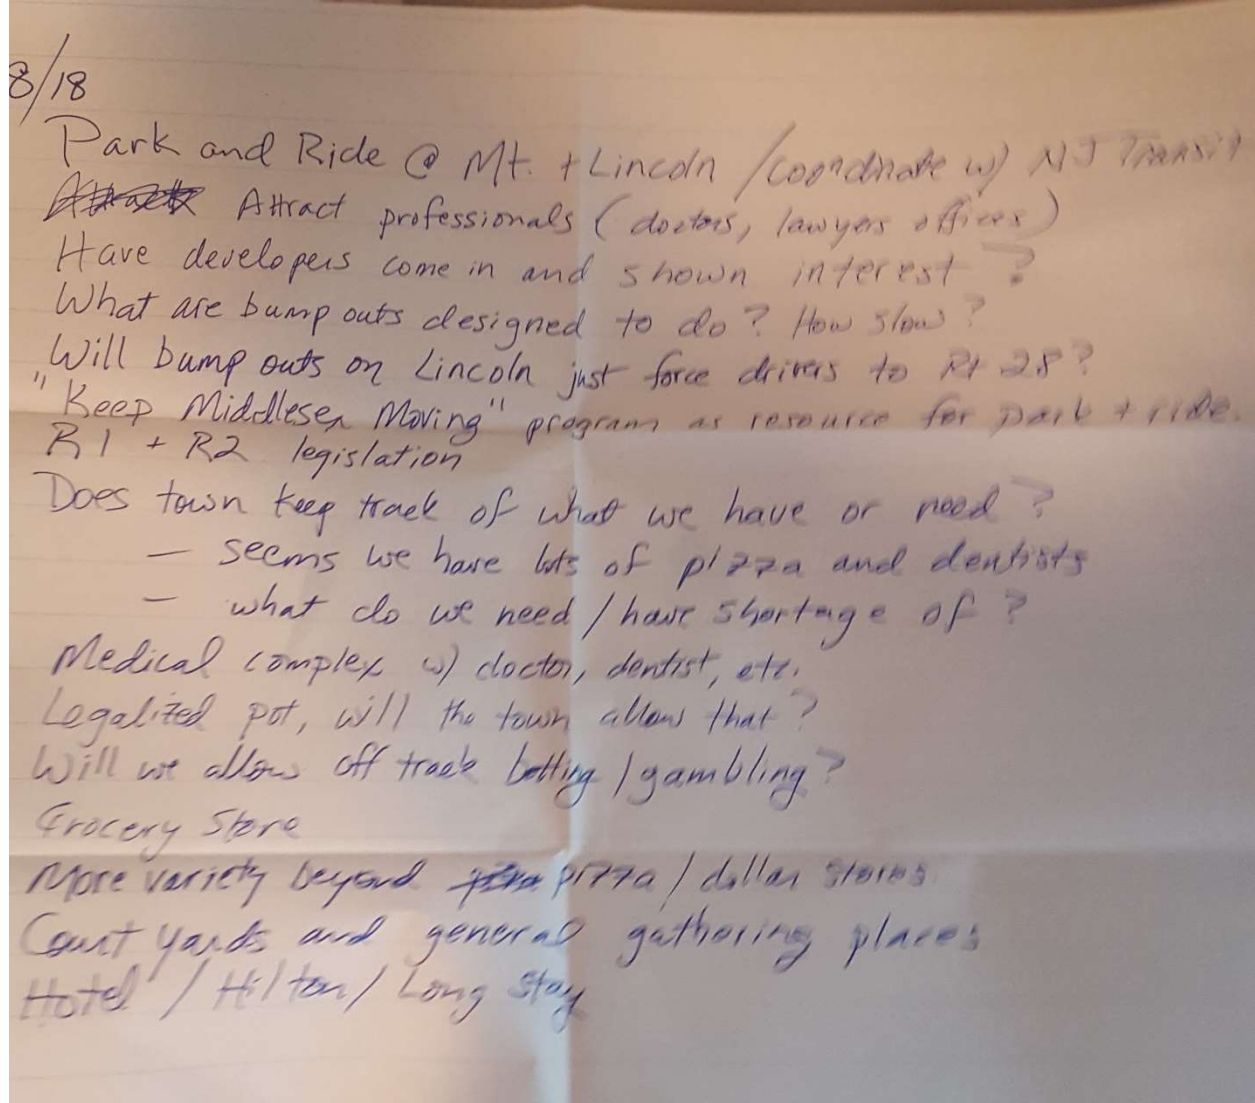 8/18
Park and Ride @ Mt. + Lincoln / coordinate w/ NJ Transit
Attract professionals (doctors, lawyers offices)
Have developers come in and shown interest?
What are bump outs designed to do? How slow?
Will bump outs on Lincoln just force drivers to Rt 28?
"Keep Middlesex Moving" program as resource for park + ride.
R1 + R2 legislation
Does town keep track of what we have or need?
— seems we have lots of pizza and dentists
— what do we need / have shortage of?
Medical complex w/ doctor, dentist, etc.
Legalized pot, will the town allow that?
Will we allow off track betting / gambling?
Grocery Store
More variety beyond pizza / dollar stores
Court yards and general gathering places
Hotel / Hilton / Long stay